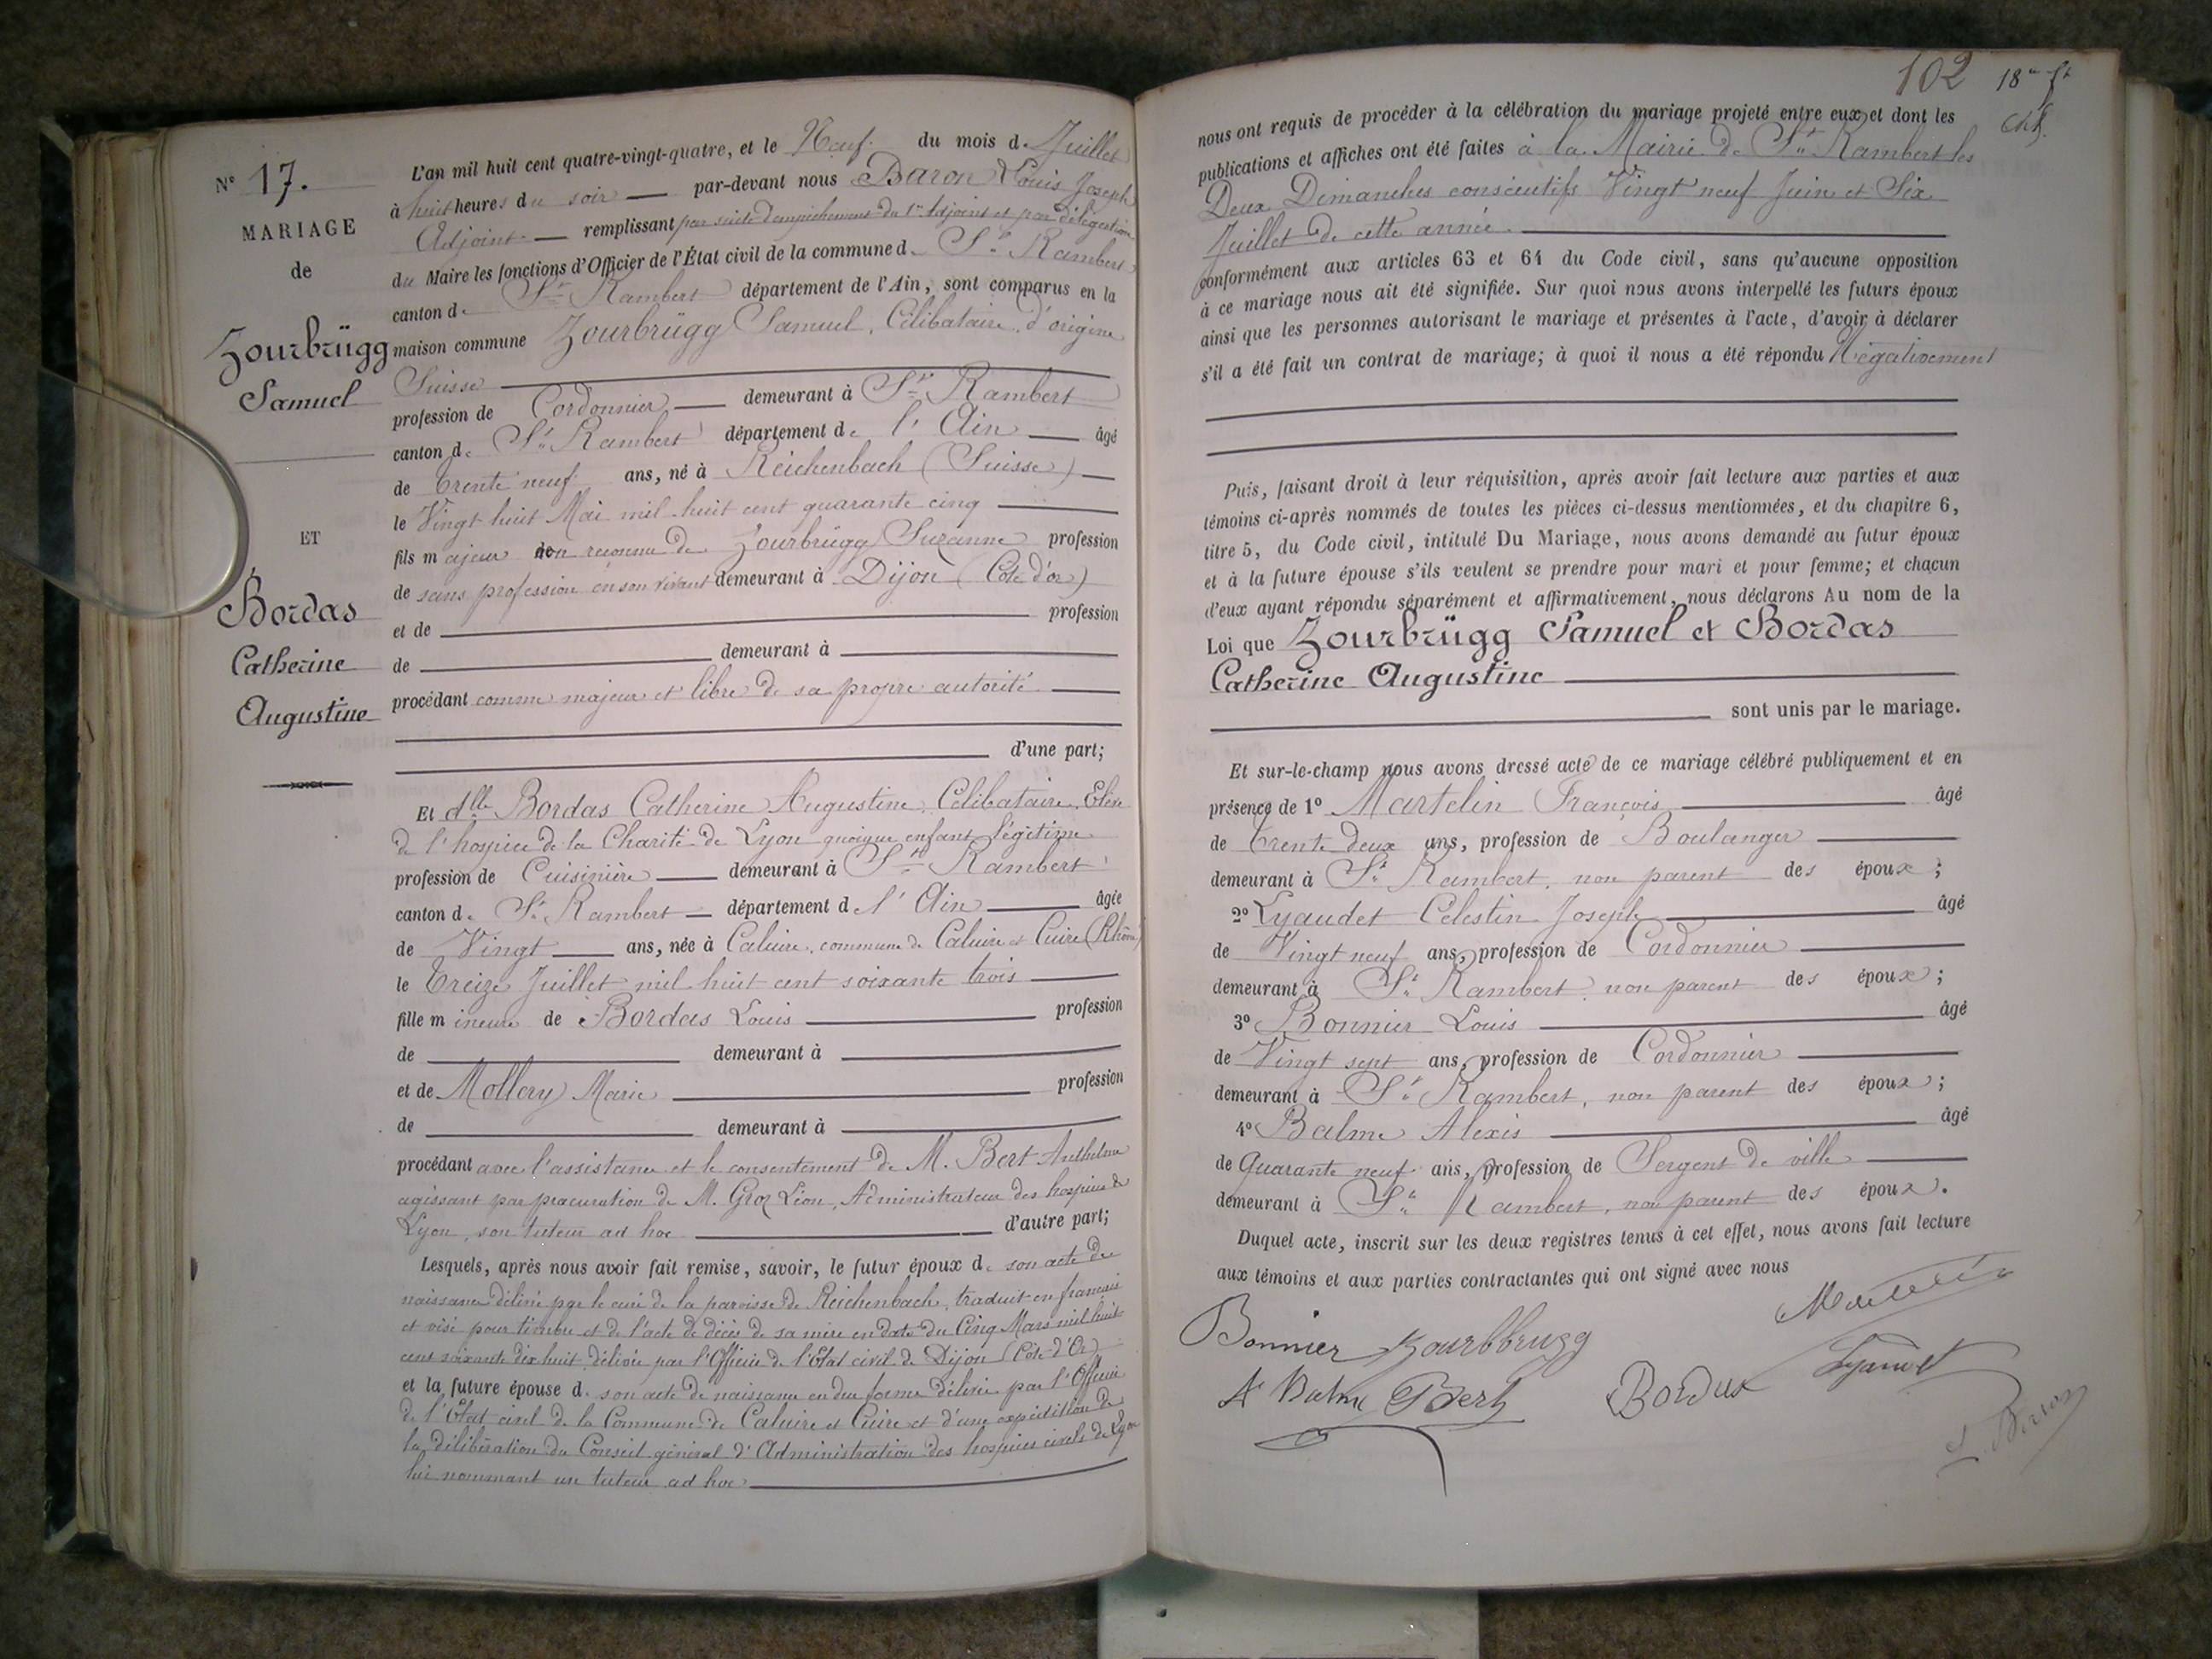 N° 17.
MARIAGE
de
Zourbrügg
Samuel
ET
Bordas
Catherine
Augustine
L'an mil huit cent quatre-vingt-quatre, et le Neuf du mois d. Juillet
à huit heures du soir par-devant nous Baron Louis Joseph
Adjoint remplissant par suite d'empêchement du 1er Adjoint et par délégation
du Maire les fonctions d'Officier de l'État civil de la commune d. St Rambert
canton d. St Rambert département de l'Ain, sont comparus en la
maison commune Zourbrügg Samuel, Célibataire, d'origine
Suisse
profession de Cordonnier demeurant à St Rambert
canton d. St Rambert département de l'Ain âgé
de trente neuf ans, né à Reichenbach (Suisse)
le Vingt huit Mai mil huit cent quarante cinq
fils majeur non reconnu de Zourbrügg Suzanne profession
de sans profession en son vivant demeurant à Dijon (Côte d'or)
et de profession
de demeurant à
procédant comme majeur et libre de sa propre autorité
d'une part;
Et dlle Bordas Catherine Augustine, Célibataire, Elève
de l'hospice de la Charité de Lyon quoique enfant légitime
profession de Cuisinière demeurant à St Rambert
canton d. St Rambert département d. l'Ain âgée
de Vingt ans, née à Caluire, commune de Caluire et Cuire (Rhône)
le Treize Juillet mil huit cent soixante trois
fille mineure de Bordas Louis profession
de demeurant à
et de Mollery Marie profession
de demeurant à
procédant avec l'assistance et le consentement de M. Bert Anthelme
agissant par procuration de M. Groz Léon, Administrateur des hospices de
Lyon, son tuteur ad hoc d'autre part;
Lesquels, après nous avoir fait remise, savoir, le futur époux d. son acte de
naissance délivré par le curé de la paroisse de Reichenbach, traduit en français
et visé pour timbre et de l'acte de décès de sa mère en date du Cinq Mars mil huit
cent soixante dix huit délivré par l'Officier de l'Etat civil de Dijon (Côte d'Or)
et la future épouse d. son acte de naissance en due forme délivré par l'Officier
de l'Etat civil de la Commune de Caluire et Cuire et d'une expédition de
la délibération du Conseil général d'Administration des hospices civils de Lyon
lui nommant un tuteur ad hoc
102
nous ont requis de procéder à la célébration du mariage projeté entre eux et dont les
publications et affiches ont été faites à la Mairie de St Rambert les
Deux Dimanches consécutifs Vingt neuf Juin et Six
Juillet de cette année.
conformément aux articles 63 et 64 du Code civil, sans qu'aucune opposition
à ce mariage nous ait été signifiée. Sur quoi nous avons interpellé les futurs époux
ainsi que les personnes autorisant le mariage et présentes à l'acte, d'avoir à déclarer
s'il a été fait un contrat de mariage; à quoi il nous a été répondu Négativement
Puis, faisant droit à leur réquisition, après avoir fait lecture aux parties et aux
témoins ci-après nommés de toutes les pièces ci-dessus mentionnées, et du chapitre 6,
titre 5, du Code civil, intitulé Du Mariage, nous avons demandé au futur époux
et à la future épouse s'ils veulent se prendre pour mari et pour femme; et chacun
d'eux ayant répondu séparément et affirmativement, nous déclarons Au nom de la
Loi que Zourbrügg Samuel et Bordas
Catherine Augustine
sont unis par le mariage.
Et sur-le-champ nous avons dressé acte de ce mariage célébré publiquement et en
présence de 1° Martelin François âgé
de trente deux ans, profession de Boulanger
demeurant à St Rambert, non parent des époux;
2° Lyaudet Célestin Joseph âgé
de Vingt neuf ans, profession de Cordonnier
demeurant à St Rambert, non parent des époux;
3° Bonnier Louis âgé
de Vingt sept ans, profession de Cordonnier
demeurant à St Rambert, non parent des époux;
4° Balme Alexis âgé
de Quarante neuf ans, profession de Sergent de ville
demeurant à St Rambert, non parent des époux.
Duquel acte, inscrit sur les deux registres tenus à cet effet, nous avons fait lecture
aux témoins et aux parties contractantes qui ont signé avec nous
Bonnier Zourbbrugg
A Balme Bert Bordas Lyaudet
L. Baron